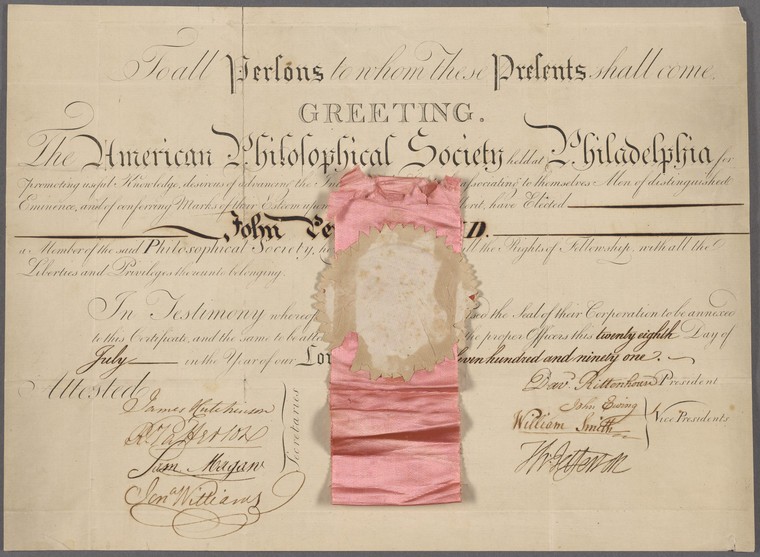 To all Persons to whom these Presents shall come.
GREETING.
The American Philosophical Society held at Philadelphia for
promoting useful Knowledge, desirous of advancing the associating to themselves Men of distinguished
Eminence, and of conferring Marks of their Esteem upon have Elected
John D.
a Member of the said Philosophical Society, all the Rights of Fellowship, with all the
Liberties and Privileges thereunto belonging.
In Testimony whereof the Seal of their Corporation to be annexed
to this Certificate, and the same to be the proper Officers this twenty eighth Day of
July in the Year of our hundred and ninety one.
Attested
James Hutchinson
R. Patterson
Sam Magaw
Jona Williams
Secretaries
Dav. Rittenhouse President
John Ewing
William Smith
Th Jefferson
Vice Presidents